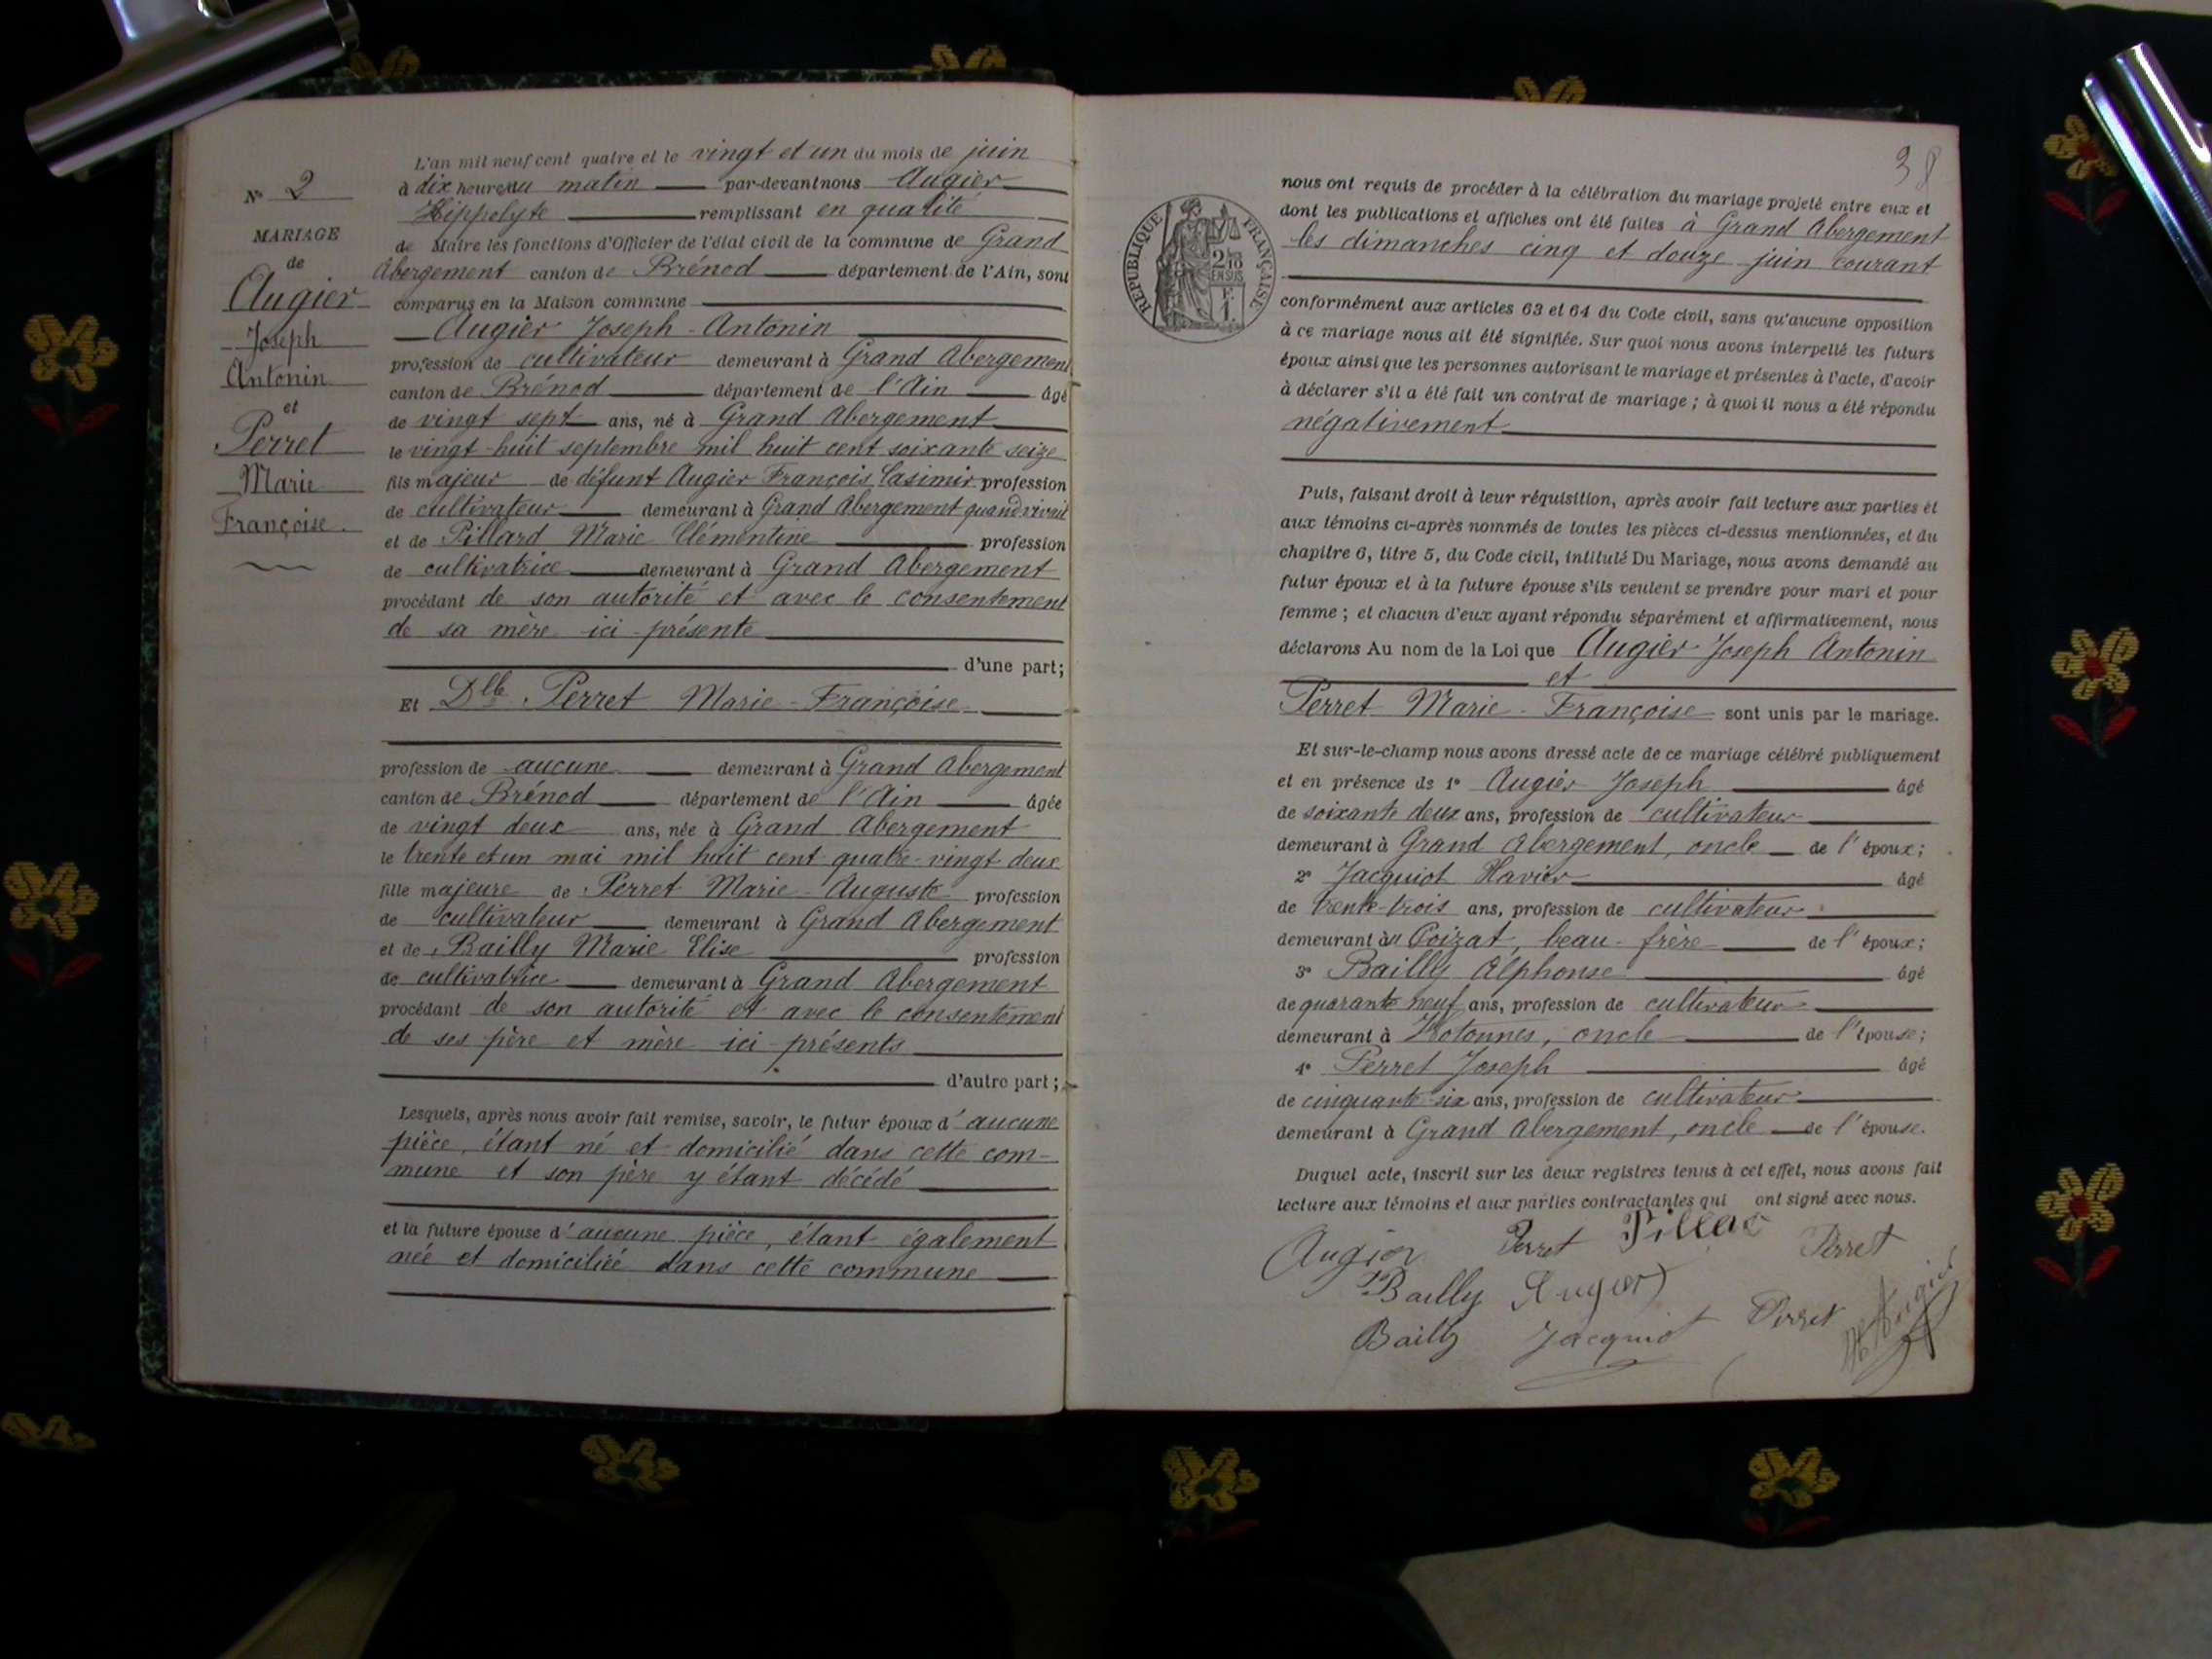 N° 2
MARIAGE
de
Augier
Joseph
Antonin
et
Perret
Marie
Françoise.
L'an mil neuf cent quatre et le vingt et un du mois de juin
à dix heures du matin par-devant nous Augier
Hippolyte remplissant en qualité
de Maire les fonctions d'Officier de l'état civil de la commune de Grand
Abergement canton de Brénod département de l'Ain, sont
comparus en la Maison commune
Augier Joseph-Antonin
profession de cultivateur demeurant à Grand Abergement
canton de Brénod département de l'Ain âgé
de vingt sept ans, né à Grand Abergement
le vingt-huit septembre mil huit cent soixante seize
fils majeur de défunt Augier François Casimir profession
de cultivateur demeurant à Grand Abergement quand vivait
et de Pillard Marie Clémentine profession
de cultivatrice demeurant à Grand Abergement
procédant de son autorité et avec le consentement
de sa mère ici-présente
d'une part;
Et Dlle Perret Marie-Françoise
profession de aucune demeurant à Grand Abergement
canton de Brénod département de l'Ain âgée
de vingt deux ans, née à Grand Abergement
le trente et un mai mil huit cent quatre-vingt deux
fille majeure de Perret Marie-Auguste profession
de cultivateur demeurant à Grand Abergement
et de Bailly Marie Elise profession
de cultivatrice demeurant à Grand Abergement
procédant de son autorité et avec le consentement
de ses père et mère ici-présents
d'autre part;
Lesquels, après nous avoir fait remise, savoir, le futur époux d'aucune
pièce, étant né et domicilié dans cette com-
mune et son père y étant décédé
et la future épouse d'aucune pièce, étant également
née et domiciliée dans cette commune
38
RÉPUBLIQUE FRANÇAISE
2/10
EN SUS
F.
1.
nous ont requis de procéder à la célébration du mariage projeté entre eux et
dont les publications et affiches ont été faites à Grand Abergement
les dimanches cinq et douze juin courant
conformément aux articles 63 et 64 du Code civil, sans qu'aucune opposition
à ce mariage nous ait été signifiée. Sur quoi nous avons interpellé les futurs
époux ainsi que les personnes autorisant le mariage et présentes à l'acte, d'avoir
à déclarer s'il a été fait un contrat de mariage; à quoi il nous a été répondu
négativement
Puis, faisant droit à leur réquisition, après avoir fait lecture aux parties et
aux témoins ci-après nommés de toutes les pièces ci-dessus mentionnées, et du
chapitre 6, titre 5, du Code civil, intitulé Du Mariage, nous avons demandé au
futur époux et à la future épouse s'ils veulent se prendre pour mari et pour
femme; et chacun d'eux ayant répondu séparément et affirmativement, nous
déclarons Au nom de la Loi que Augier Joseph Antonin
et
Perret Marie-Françoise sont unis par le mariage.
Et sur-le-champ nous avons dressé acte de ce mariage célébré publiquement
et en présence de 1° Augier Joseph âgé
de soixante deux ans, profession de cultivateur
demeurant à Grand Abergement, oncle de l'époux;
2° Jacquiot Xavier âgé
de trente-trois ans, profession de cultivateur
demeurant au Poizat, beau-frère de l'époux;
3° Bailly Alphonse âgé
de quarante neuf ans, profession de cultivateur
demeurant à Hotonnes, oncle de l'épouse;
4° Perret Joseph âgé
de cinquante-six ans, profession de cultivateur
demeurant à Grand Abergement, oncle de l'épouse.
Duquel acte, inscrit sur les deux registres tenus à cet effet, nous avons fait
lecture aux témoins et aux parties contractantes qui ont signé avec nous.
Augier Perret Pillar Perret
Bailly Augier
Bailly Jacquiot Perret H. Augier